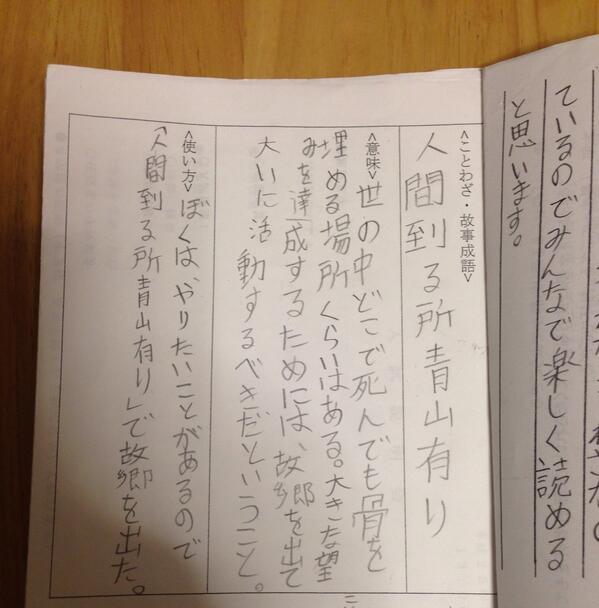 ているのでみんなで楽しく読める
と思います。
<ことわざ・故事成語>
人間到る所青山有り
<意味>世の中どこで死んでも骨を
埋める場所くらいはある。大きな望
みを達成するためには、故郷を出て
大いに活動するべきだということ。
<使い方>ぼくは、やりたいことがあるので
「人間到る所青山有り」で故郷を出た。